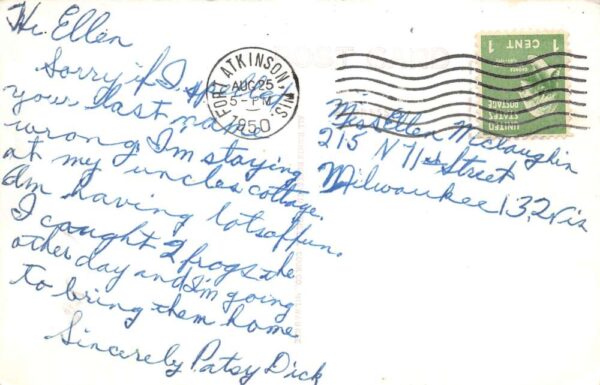 Hi Ellen
Sorry if I spelled
your last name
wrong. I'm staying
at my uncles cottage.
I'm having lots of fun.
I caught 2 frogs the
other day and I'm going
to bring them home.
Sincerely Patsy Dick
FORT ATKINSON, WIS.
AUG 25
5 - PM
1950
1 CENT 1
UNITED
STATES
POSTAGE
Miss Ellen McLaughlin
215 N 71st Street
Milwaukee 13, Wis
POST CARD